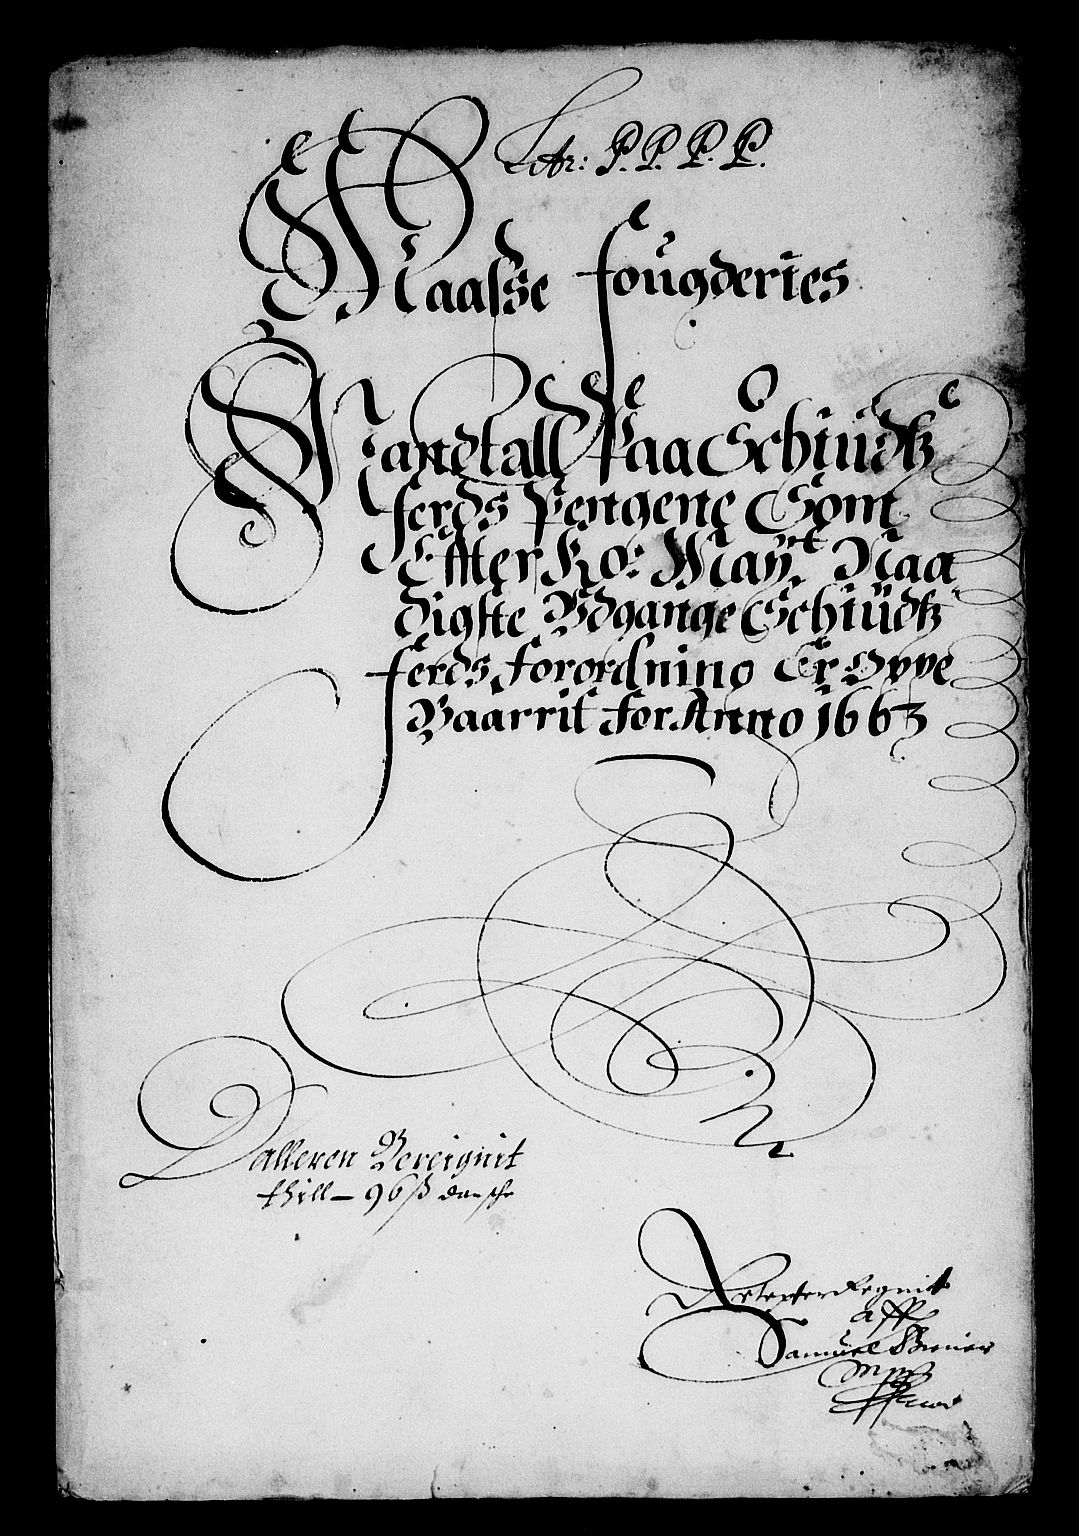 Litr: P. P. P. P.
Naasse fougderies
Mandtall Paa Schiüdtz
ferds Pengene Som
Effter Ko: Mayt. Naa
digste Vdgange Schiüdtz
ferds forordning Er Oppe
Baarrit for Anno 1663
Dalleren Bereignit
thill — 96 ß dansche
Effterregnit
aff
Samuel